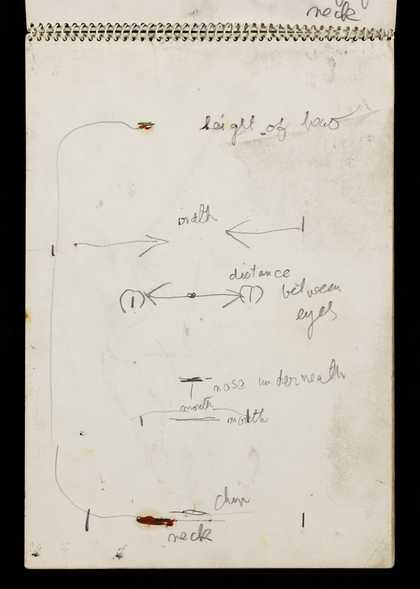 neck
height of
width
distance
between
eyes
nose underneath
mouth
mouth
chin
neck